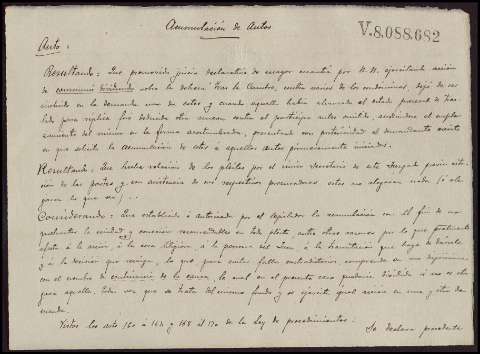 Acumulación de Autos
V.8.088.682
Auto:
Resultando: Que promovido juicio declarativo de mayor cuantía por N. N. ejercitando acción
de communi dividundo sobre la dehesa tras la Cumbre, contra varios de los condominos, dejó de ser
incluido en la demanda uno de estos y cuando aquella había alcanzado el estado procesal de tras-
lado para réplica fue deducida otra nueva contra el partícipe antes omitido, haciéndose el empla-
zamiento del mismo en la forma acostumbrada, presentando con posterioridad el demandante escrito
en que solicita la acumulación de estos á aquellos autos primeramente iniciados.
Resultando: Que hecha relación de los pleitos por el único Secretario de este Juzgado previa cita-
ción de las partes y con asistencia de sus respectivos procuradores estos no alegaron nada (ó ale-
garon lo que sea)
Considerando: Que establecida ó autorizada por el legislador la acumulación con el fin de
la unidad y conexión recomendables en todo pleito, entre otras razones por lo que
afecta á la acción, á la cosa litigiosa, á la persona del Juez, á la tramitación que haya de dársele
y á la decisión que recaiga, lo que para evitar fallos contradictorios, comprende en una disposición
con el nombre de continencia de la causa, la cual en el presente caso puede dividida si no se
para aquella, toda vez que se trata del mismo fundo y se ejercita igual acción en una y otra de-
manda.
Vistos los arts 160 á 164 y 168 al 170 de la Ley de procedimientos:
Se declara procedente